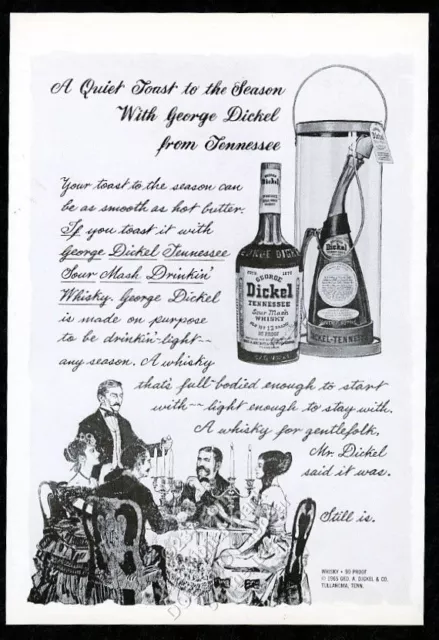 A Quiet Toast to the Season
With George Dickel
from Tennessee
Your toast to the season can
be as smooth as hot butter.
If you toast it with
George Dickel Tennessee
Sour Mash Drinkin'
Whisky. George Dickel
is made on purpose
to be drinkin' light--
any season. A whisky
that's full-bodied enough to start
with--light enough to stay with.
A whisky for gentlefolk,
Mr. Dickel
said it was.
Still is.
Dickel
GEORGE DICKEL
GEORGE
Dickel
TENNESSEE
Sour Mash
WHISKY
Dickel
DICKEL-TENNESSEE
WHISKY • 90 PROOF
© 1965 GEO. A. DICKEL & CO.
TULLAHOMA, TENN.